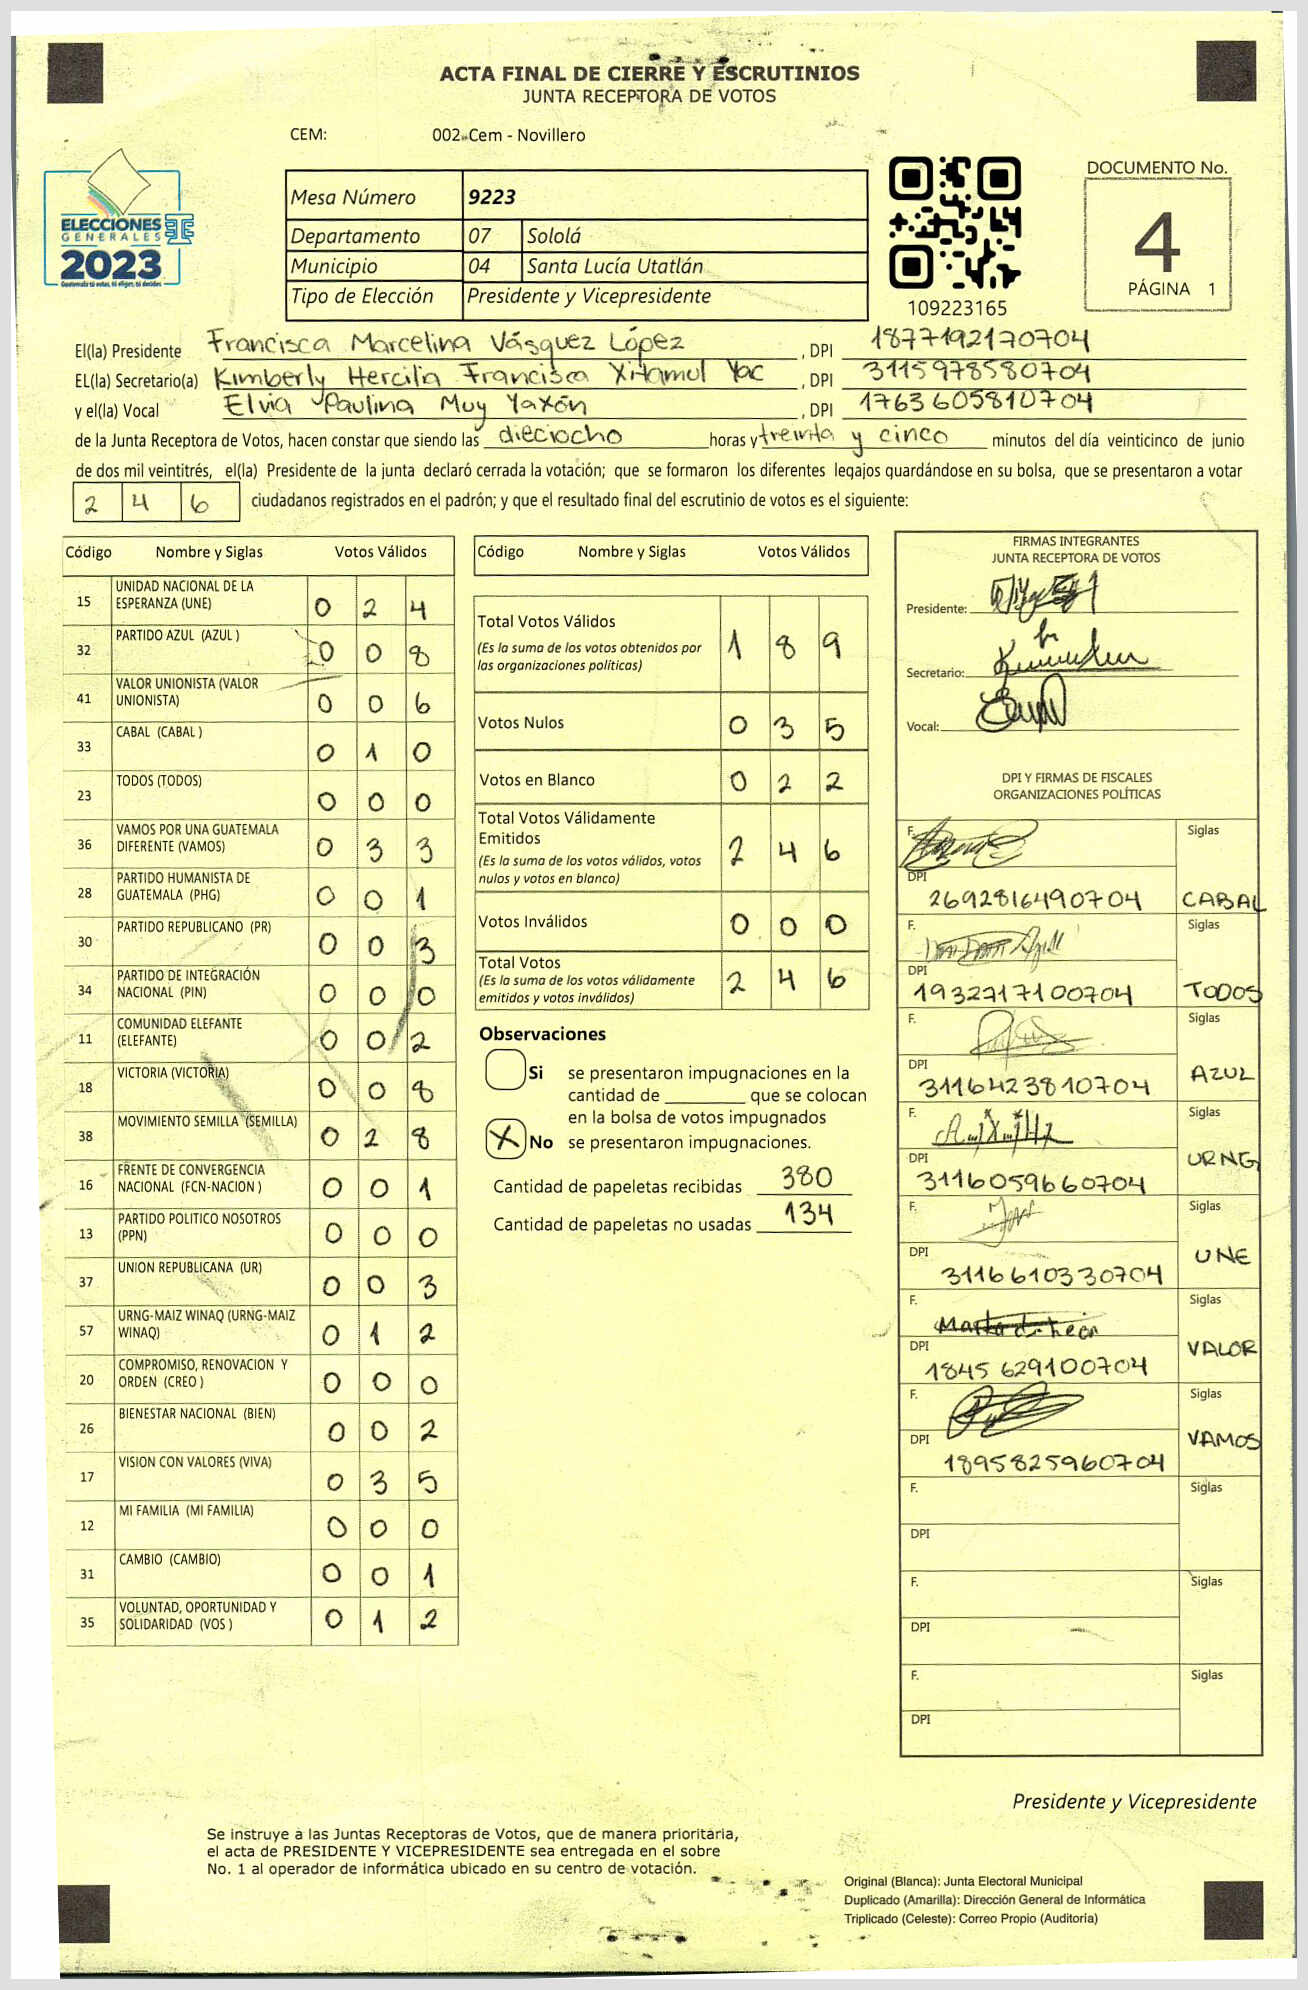 ACTA FINAL DE CIERRE Y ESCRUTINIOS
JUNTA RECEPTORA DE VOTOS
CEM: 002 Cem - Novillero
ELECCIONES
GENERALES
2023
Guatemala tú votas, tú eliges, tú decides
Mesa Número 9223
Departamento 07 Sololá
Municipio 04 Santa Lucía Utatlán
Tipo de Elección Presidente y Vicepresidente
109223165
DOCUMENTO No.
4
PÁGINA 1
El(la) Presidente Francisca Marcelina Vásquez López , DPI 1877192170704
EL(la) Secretario(a) Kimberly Hercilia Francisca Xitamul Yac , DPI 3115978580704
y el(la) Vocal Elvia Paulina Muy Yaxón , DPI 1763605810704
de la Junta Receptora de Votos, hacen constar que siendo las dieciocho horas y treinta y cinco minutos del día veinticinco de junio
de dos mil veintitrés, el(la) Presidente de la junta declaró cerrada la votación; que se formaron los diferentes legajos guardándose en su bolsa, que se presentaron a votar
2 4 6 ciudadanos registrados en el padrón; y que el resultado final del escrutinio de votos es el siguiente:
Código Nombre y Siglas Votos Válidos
15 UNIDAD NACIONAL DE LA ESPERANZA (UNE) 0 2 4
32 PARTIDO AZUL (AZUL ) 0 0 8
41 VALOR UNIONISTA (VALOR UNIONISTA) 0 0 6
33 CABAL (CABAL ) 0 1 0
23 TODOS (TODOS) 0 0 0
36 VAMOS POR UNA GUATEMALA DIFERENTE (VAMOS) 0 3 3
28 PARTIDO HUMANISTA DE GUATEMALA (PHG) 0 0 1
30 PARTIDO REPUBLICANO (PR) 0 0 3
34 PARTIDO DE INTEGRACIÓN NACIONAL (PIN) 0 0 0
11 COMUNIDAD ELEFANTE (ELEFANTE) 0 0 2
18 VICTORIA (VICTORIA) 0 0 8
38 MOVIMIENTO SEMILLA (SEMILLA) 0 2 8
16 FRENTE DE CONVERGENCIA NACIONAL (FCN-NACION ) 0 0 1
13 PARTIDO POLITICO NOSOTROS (PPN) 0 0 0
37 UNION REPUBLICANA (UR) 0 0 3
57 URNG-MAIZ WINAQ (URNG-MAIZ WINAQ) 0 1 2
20 COMPROMISO, RENOVACION Y ORDEN (CREO ) 0 0 0
26 BIENESTAR NACIONAL (BIEN) 0 0 2
17 VISION CON VALORES (VIVA) 0 3 5
12 MI FAMILIA (MI FAMILIA) 0 0 0
31 CAMBIO (CAMBIO) 0 0 1
35 VOLUNTAD, OPORTUNIDAD Y SOLIDARIDAD (VOS ) 0 1 2
Código Nombre y Siglas Votos Válidos
Total Votos Válidos 1 8 9
(Es la suma de los votos obtenidos por
las organizaciones políticas)
Votos Nulos 0 3 5
Votos en Blanco 0 2 2
Total Votos Válidamente
Emitidos 2 4 6
(Es la suma de los votos válidos, votos
nulos y votos en blanco)
Votos Inválidos 0 0 0
Total Votos 2 4 6
(Es la suma de los votos válidamente
emitidos y votos inválidos)
Observaciones
Si se presentaron impugnaciones en la
cantidad de ________ que se colocan
en la bolsa de votos impugnados
X No se presentaron impugnaciones.
Cantidad de papeletas recibidas 380
Cantidad de papeletas no usadas 134
FIRMAS INTEGRANTES
JUNTA RECEPTORA DE VOTOS
Presidente:
Secretario:
Vocal:
DPI Y FIRMAS DE FISCALES
ORGANIZACIONES POLÍTICAS
F. Siglas
DPI 2692816490704 CABAL
F. Siglas
DPI 1932717100704 TODOS
F. Siglas
DPI 3116423810704 AZUL
F. Siglas
DPI 3116059660704 URNG
F. Siglas
DPI 3116610330704 UNE
F. Siglas
DPI 1845629100704 VALOR
F. Siglas
DPI 1895825960704 VAMOS
F. Siglas
DPI
F. Siglas
DPI
F. Siglas
DPI
Presidente y Vicepresidente
Se instruye a las Juntas Receptoras de Votos, que de manera prioritaria,
el acta de PRESIDENTE Y VICEPRESIDENTE sea entregada en el sobre
No. 1 al operador de informática ubicado en su centro de votación.
Original (Blanca): Junta Electoral Municipal
Duplicado (Amarilla): Dirección General de Informática
Triplicado (Celeste): Correo Propio (Auditoría)